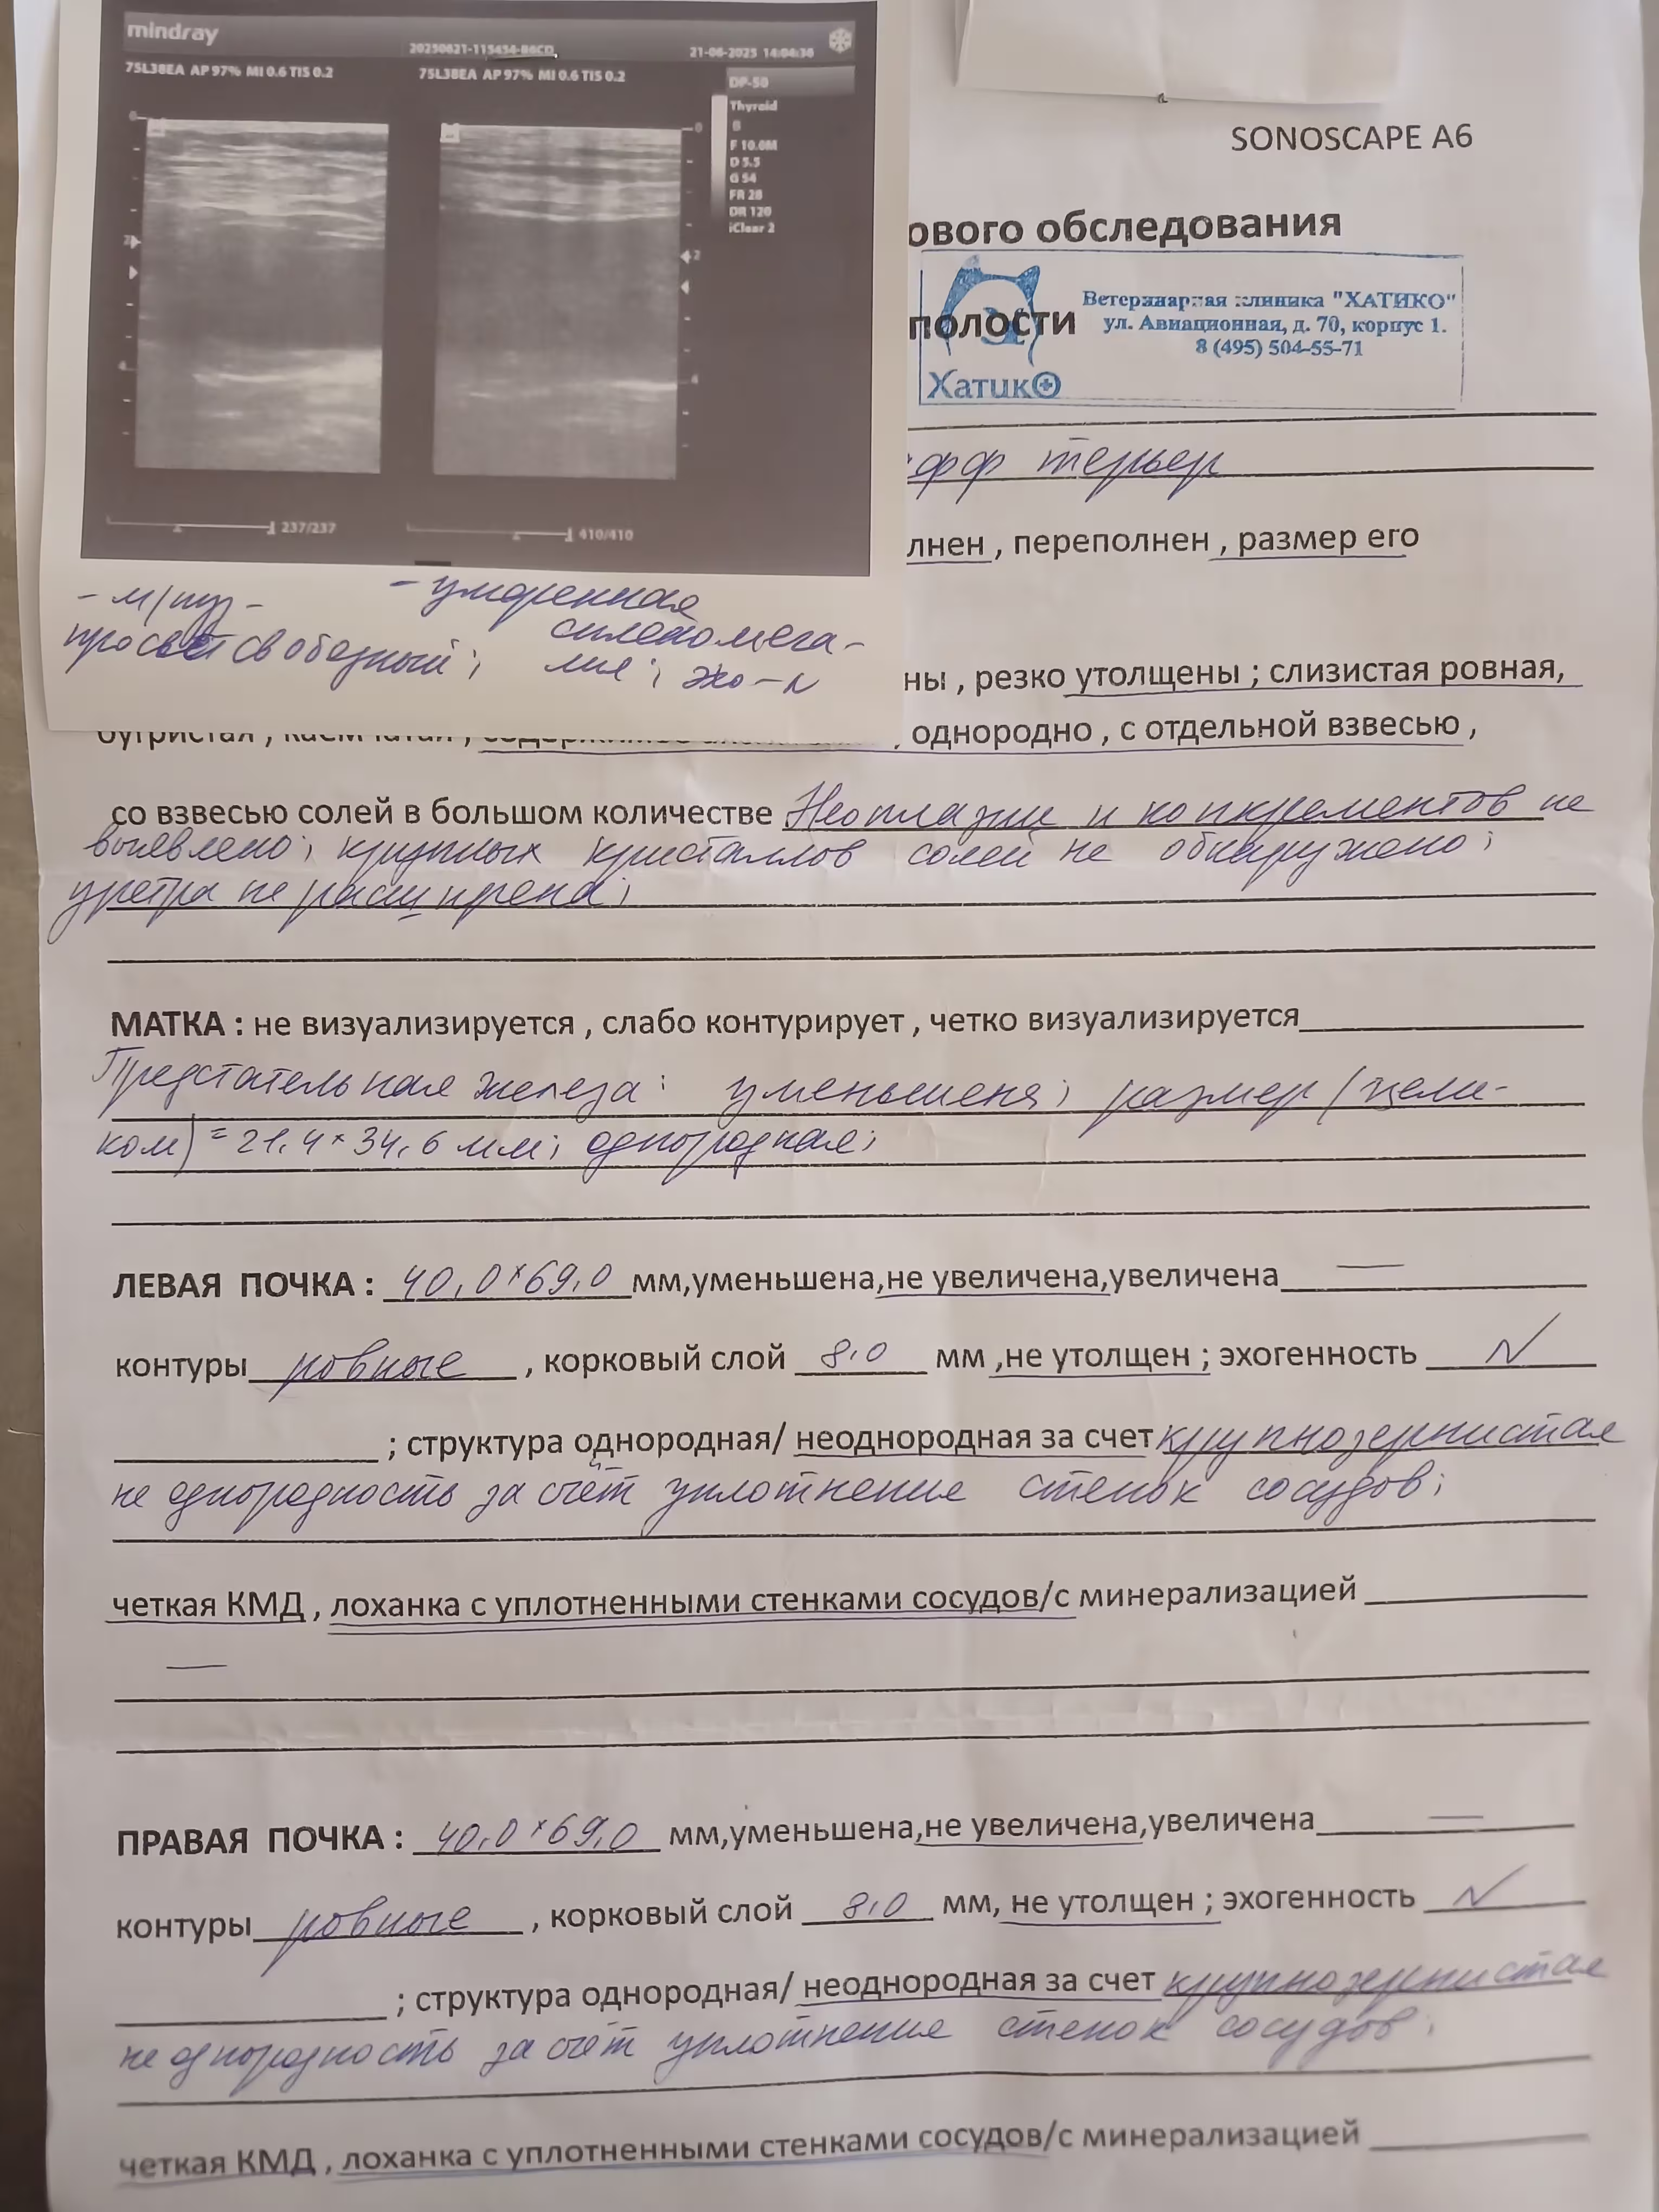 mindray
20250621-115454-B6CD
21-06-2025 14:04:36
75L38EA AP 97% MI 0.6 TIS 0.2
75L38EA AP 97% MI 0.6 TIS 0.2
DP-50
Thyroid
B
F 10.0M
D 5.5
G 54
FR 28
DR 120
iClear 2
0
0
2
2
4
4
237/237
410/410
- м/пуз -
просвет свободный;
- умеренная
спленомега-
лия; эхо-N
SONOSCAPE A6
ового обследования
Ветеринарная клиника "ХАТИКО"
ул. Авиационная, д. 70, корпус 1.
8 (495) 504-55-71
Хатико
полости
фф терьер
лнен , переполнен , размер его
ны , резко утолщены ; слизистая ровная,
, однородно , с отдельной взвесью ,
со взвесью солей в большом количестве Неоплазии и конкрементов не
выявлено; крупных кристаллов солей не обнаружено;
уретра не расширена;
МАТКА : не визуализируется , слабо контурирует , четко визуализируется
Предстательная железа: уменьшена; размер (цели-
ком) = 21,4×34,6 мм; однородная;
ЛЕВАЯ ПОЧКА : 40,0×69,0 мм,уменьшена,не увеличена,увеличена —
контуры ровные , корковый слой 8,0 мм ,не утолщен ; эхогенность N
; структура однородная/ неоднородная за счет крупнозернистая
неоднородность за счёт уплотнение стенок сосудов;
четкая КМД , лоханка с уплотненными стенками сосудов/с минерализацией
—
ПРАВАЯ ПОЧКА : 40,0×69,0 мм,уменьшена,не увеличена,увеличена —
контуры ровные , корковый слой 8,0 мм, не утолщен ; эхогенность N
; структура однородная/ неоднородная за счет крупнозернистая
неоднородность за счёт уплотнение стенок сосудов;
четкая КМД , лоханка с уплотненными стенками сосудов/с минерализацией